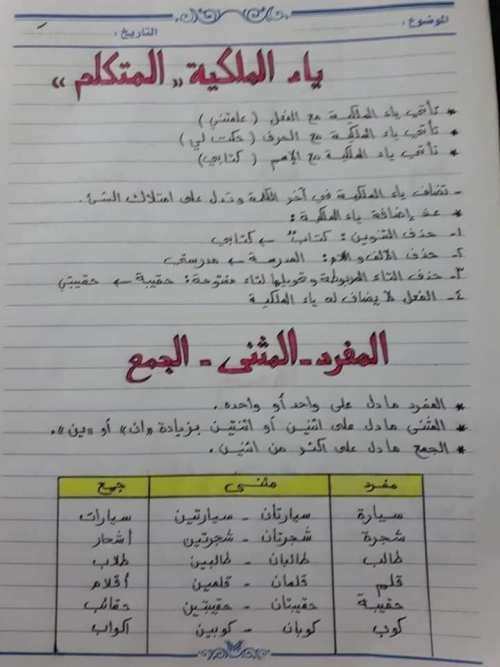 الموضوع: التاريخ:
ياء الملكية "المتكلم"
* تأتي ياء الملكية مع الفعل (علمتني)
* تأتي ياء الملكية مع الحرف (حكت لي)
* تأتي ياء الملكية مع الاسم (كتابي)
- تضاف ياء الملكية في آخر الكلمة وتدل على امتلاك الشيء.
* عند إضافة ياء الملكية:
١- حذف التنوين: كتابٌ ← كتابي
٢- حذف الألف واللام: المدرسة ← مدرستي
٣- حذف التاء المربوطة وتحويلها لتاء مفتوحة: حقيبة ← حقيبتي
٤- الفعل لا يضاف له ياء الملكية
المفرد - المثنى - الجمع
* المفرد ما دل على واحد أو واحده.
* المثنى ما دل على اثنين أو اثنتين بزيادة «ان» أو «ين».
* الجمع ما دل على أكثر من اثنين.
مفرد مثنى جمع
سيارة سيارتان - سيارتين سيارات
شجرة شجرتان - شجرتين أشجار
طالب طالبان - طالبين طلاب
قلم قلمان - قلمين أقلام
حقيبة حقيبتان - حقيبتين حقائب
كوب كوبان - كوبين أكواب